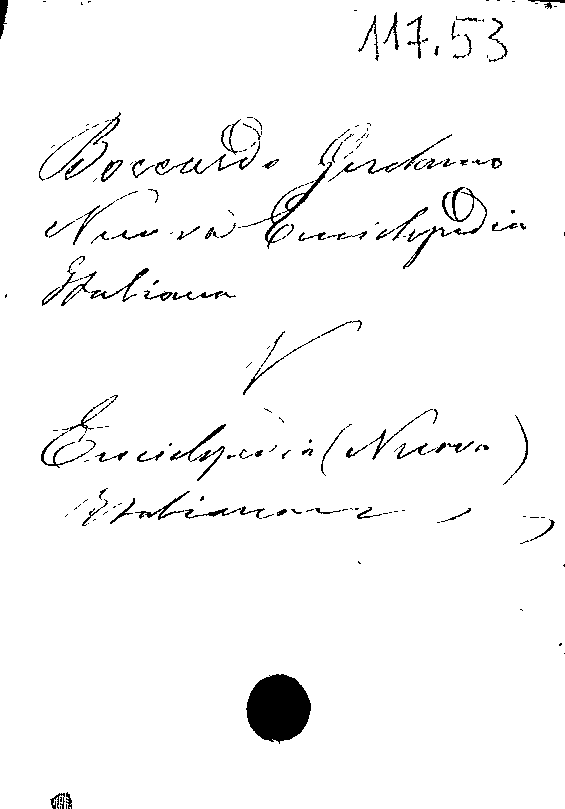 117.53
Boccardo Gerolamo
Nuova Enciclopedia
Italiana
V
Enciclopedia (Nuova)
Italiana